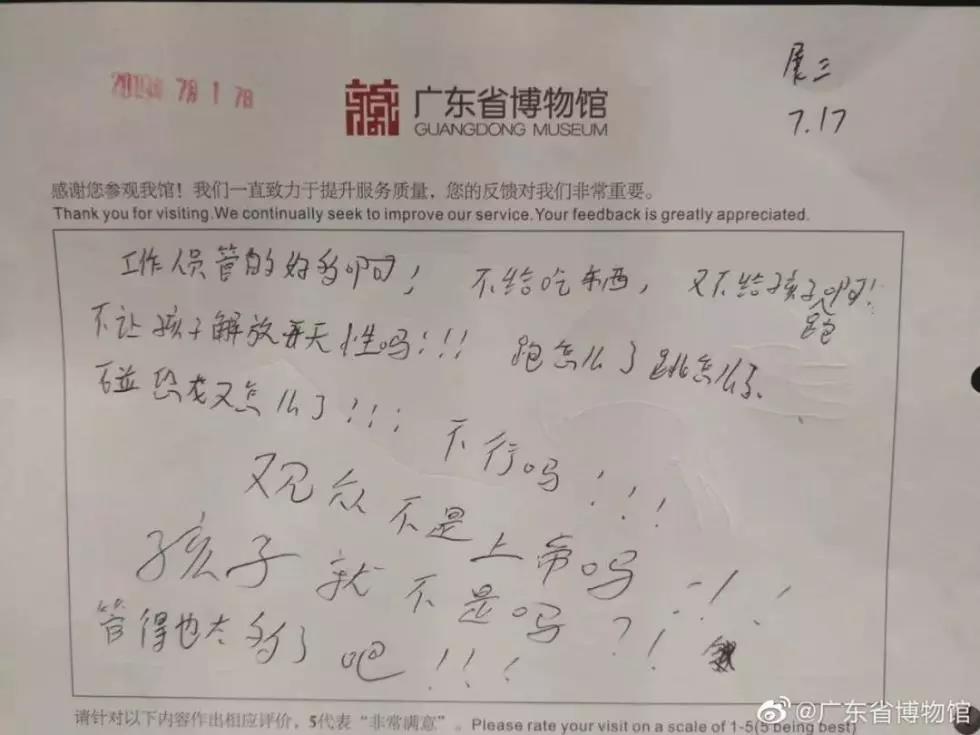 展三
7.17
广东省博物馆
GUANGDONG MUSEUM
感谢您参观我馆！我们一直致力于提升服务质量，您的反馈对我们非常重要。
Thank you for visiting.We continually seek to improve our service.Your feedback is greatly appreciated.
工作人员管的好多啊！ 不给吃东西，又不给孩子跑啊！
不让孩子解放天性吗！！！ 跑怎么了跳怎么了、
碰恐龙又怎么了！！！ 不行吗！！！
观众不是上帝吗！！！
孩子就不是吗？！
管得也太多了吧！！！
请针对以下内容作出相应评价，5代表“非常满意”。Please rate your visit on a scale of 1-5(5 being best)
@广东省博物馆